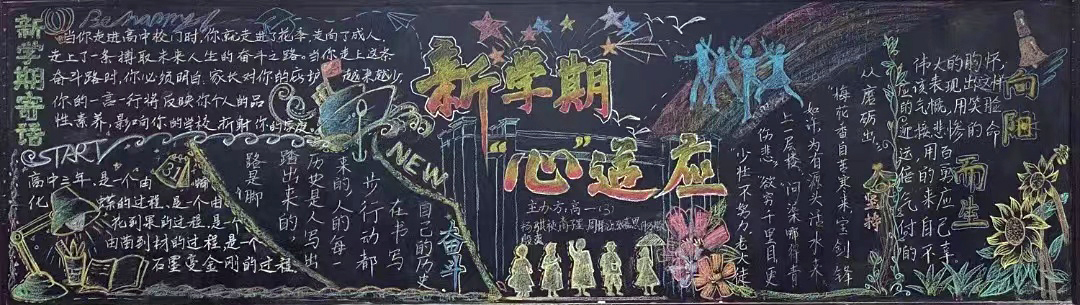 新学期寄语
Be happy!
当你走进高中校门时,你就走进了花季,走向了成人,
走上了一条搏取未来人生的奋斗之路。当你走上这条
奋斗路时,你必须明白,家长对你的呵护 越来越少,
你的一言一行将反映你个人的品
性、素养,影响你的学校,折射你的家庭。
START
高中三年,是一个由蛹
化 蝶的过程,是一个由
花到果的过程,是个
由苗到材的过程是一个
石墨变金刚的过程.
31
路是脚
踏出来的
历史是人写出
来的。人的每
一步行动都
在书写
自己的历史
NEW
奋斗
新学期
“心”适应
主办方:高一(3)
少壮不努力,老大徒
伤悲。”“欲穷千里目,更
上一层楼。”“问渠哪得清
如许?为有源头活水来
“梅花香自苦寒来,宝剑锋
从磨砺出。”
坚持
向阳而生
伟大的胸怀,
应该表现出这样
的气慨,用笑脸
迎接悲惨的命
运,用百
倍的勇
气来应
付自己
的不幸。